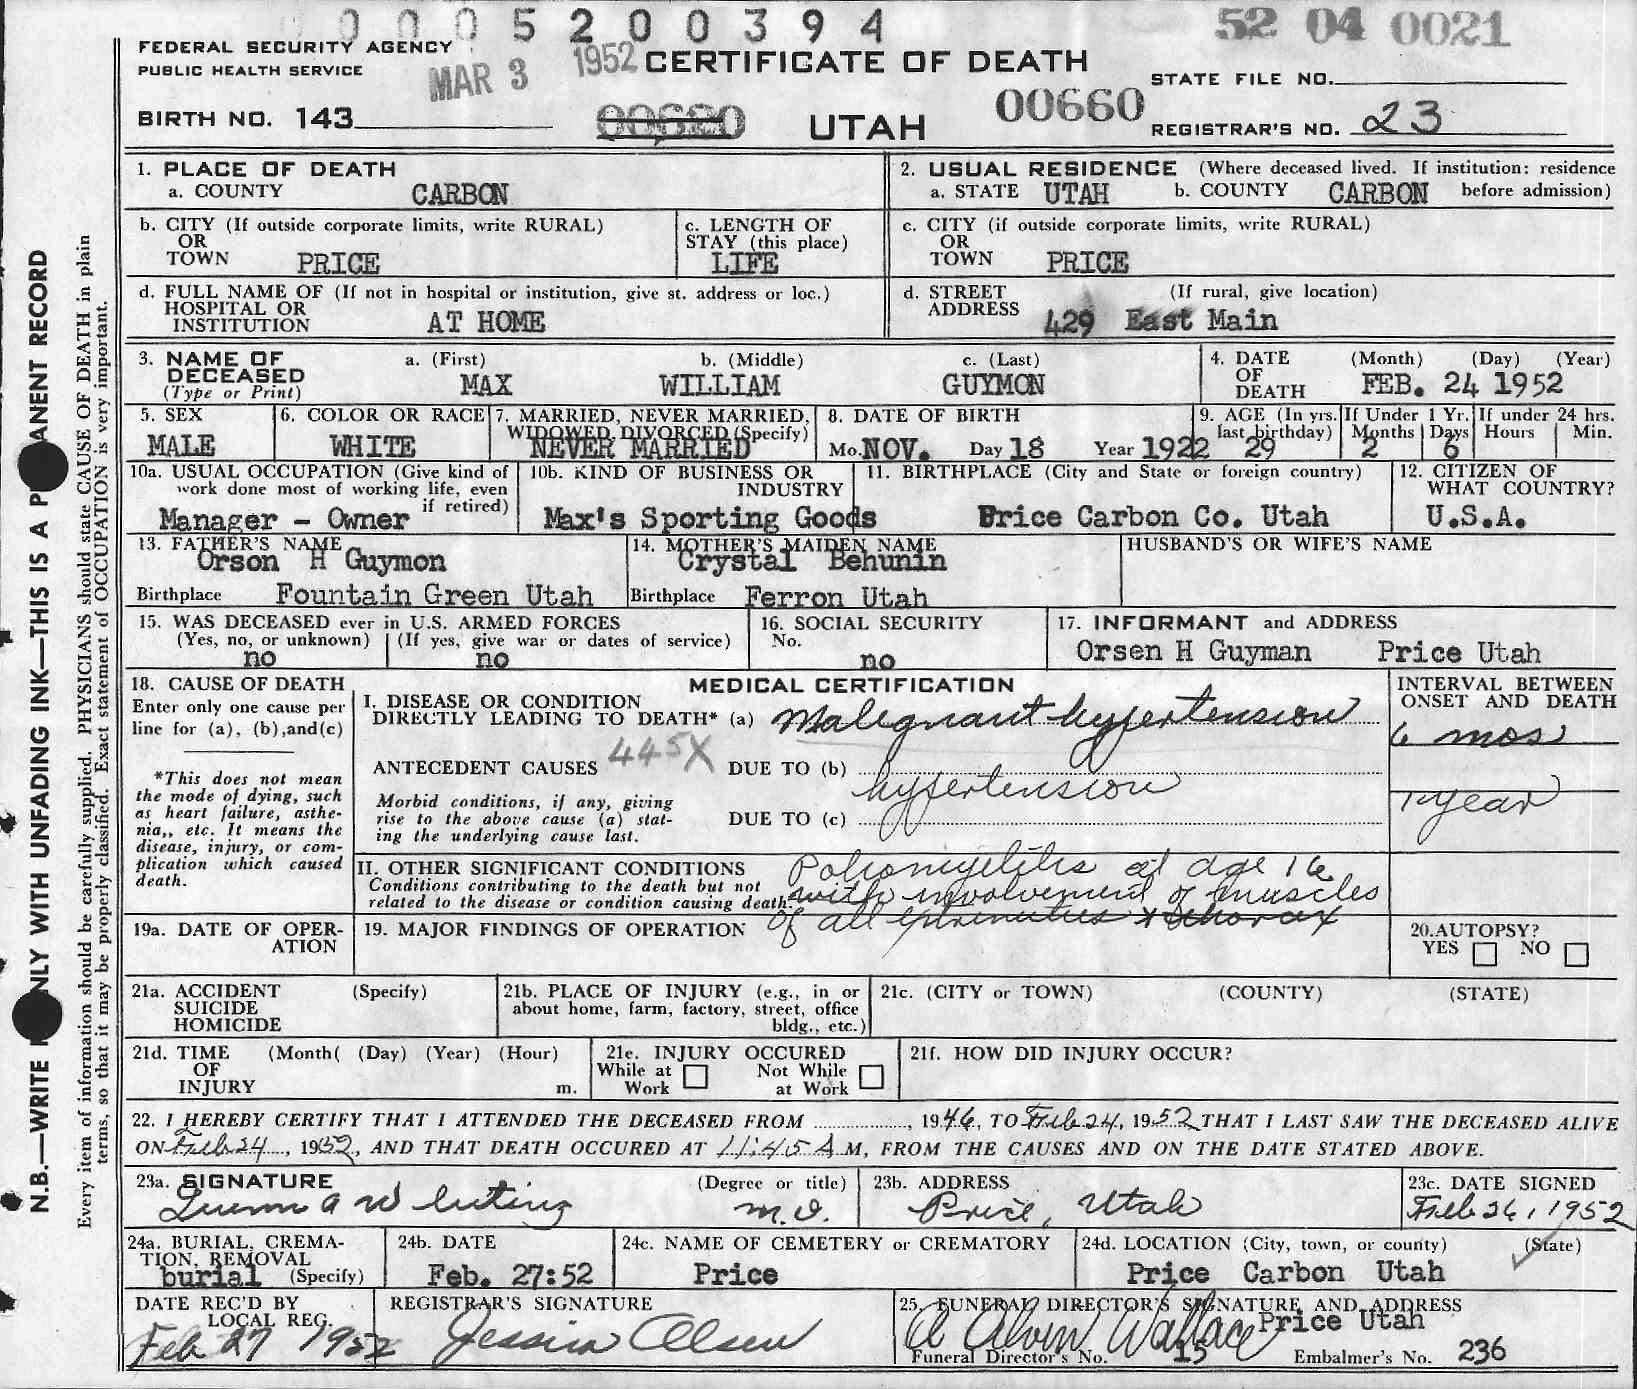 0 0 0 5 2 0 0 3 9 4
52 04 0021
FEDERAL SECURITY AGENCY
PUBLIC HEALTH SERVICE
MAR 3 1952
CERTIFICATE OF DEATH
STATE FILE NO.
BIRTH NO. 143
UTAH
00660
REGISTRAR'S NO. 23
1. PLACE OF DEATH
a. COUNTY CARBON
2. USUAL RESIDENCE (Where deceased lived. If institution: residence
a. STATE UTAH b. COUNTY CARBON before admission)
b. CITY (If outside corporate limits, write RURAL)
OR
TOWN PRICE
c. LENGTH OF
STAY (this place)
LIFE
c. CITY (if outside corporate limits, write RURAL)
OR
TOWN PRICE
d. FULL NAME OF (If not in hospital or institution, give st. address or loc.)
HOSPITAL OR
INSTITUTION AT HOME
d. STREET (If rural, give location)
ADDRESS 429 East Main
3. NAME OF
DECEASED
(Type or Print)
a. (First) b. (Middle) c. (Last)
MAX WILLIAM GUYMON
4. DATE
OF
DEATH
(Month) (Day) (Year)
FEB. 24 1952
5. SEX
MALE
6. COLOR OR RACE
WHITE
7. MARRIED, NEVER MARRIED,
WIDOWED, DIVORCED (Specify)
NEVER MARRIED
8. DATE OF BIRTH
Mo. NOV. Day 18 Year 1922
9. AGE (In yrs.
last birthday)
29
If Under 1 Yr.
Months Days
2 6
If under 24 hrs.
Hours Min.
10a. USUAL OCCUPATION (Give kind of
work done most of working life, even
if retired)
Manager - Owner
10b. KIND OF BUSINESS OR
INDUSTRY
Max's Sporting Goods
11. BIRTHPLACE (City and State or foreign country)
Price Carbon Co. Utah
12. CITIZEN OF
WHAT COUNTRY?
U.S.A.
13. FATHER'S NAME
Orson H Guymon
Birthplace Fountain Green Utah
14. MOTHER'S MAIDEN NAME
Crystal Behunin
Birthplace Ferron Utah
HUSBAND'S OR WIFE'S NAME
15. WAS DECEASED ever in U.S. ARMED FORCES
(Yes, no, or unknown) (If yes, give war or dates of service)
no no
16. SOCIAL SECURITY
No.
no
17. INFORMANT and ADDRESS
Orsen H Guyman Price Utah
18. CAUSE OF DEATH
Enter only one cause per
line for (a), (b),and(c)
*This does not mean
the mode of dying, such
as heart failure, asthe-
nia,, etc. It means the
disease, injury, or com-
plication which caused
death.
MEDICAL CERTIFICATION
I. DISEASE OR CONDITION
DIRECTLY LEADING TO DEATH* (a) Malignant hypertension
445X
ANTECEDENT CAUSES DUE TO (b)
hypertension
Morbid conditions, if any, giving
rise to the above cause (a) stat-
ing the underlying cause last.
DUE TO (c)
INTERVAL BETWEEN
ONSET AND DEATH
6 mos
1 year
II. OTHER SIGNIFICANT CONDITIONS
Conditions contributing to the death but not
related to the disease or condition causing death.
Poliomyelitis at age 16
with involvement of muscles
of all extremities & thorax
19a. DATE OF OPER-
ATION
19. MAJOR FINDINGS OF OPERATION
20.AUTOPSY?
YES NO
21a. ACCIDENT (Specify)
SUICIDE
HOMICIDE
21b. PLACE OF INJURY (e.g., in or
about home, farm, factory, street, office
bldg., etc.)
21c. (CITY or TOWN) (COUNTY) (STATE)
21d. TIME (Month( (Day) (Year) (Hour)
OF
INJURY m.
21e. INJURY OCCURED
While at Not While
Work at Work
21f. HOW DID INJURY OCCUR?
22. I HEREBY CERTIFY THAT I ATTENDED THE DECEASED FROM , 1946, TO Feb 24, 1952 THAT I LAST SAW THE DECEASED ALIVE
ON Feb 24, 1952, AND THAT DEATH OCCURED AT 11:45 A M, FROM THE CAUSES AND ON THE DATE STATED ABOVE.
23a. SIGNATURE (Degree or title)
M.D.
23b. ADDRESS
Price, Utah
23c. DATE SIGNED
Feb 26, 1952
24a. BURIAL, CREMA-
TION, REMOVAL
burial (Specify)
24b. DATE
Feb. 27:52
24c. NAME OF CEMETERY or CREMATORY
Price
24d. LOCATION (City, town, or county) (State)
Price Carbon Utah
DATE REC'D BY
LOCAL REG.
Feb 27 1952
REGISTRAR'S SIGNATURE
Jessica Olsen
25. FUNERAL DIRECTOR'S SIGNATURE AND ADDRESS
A Alvin Wallace Price Utah
Funeral Director's No. 15 Embalmer's No. 236
N.B.—WRITE ONLY WITH UNFADING INK—THIS IS A P ANENT RECORD
Every item of information should be carefully supplied. PHYSICIANS should state CAUSE OF DEATH in plain
terms, so that it may be properly classified. Exact statement of OCCUPATION is very important.